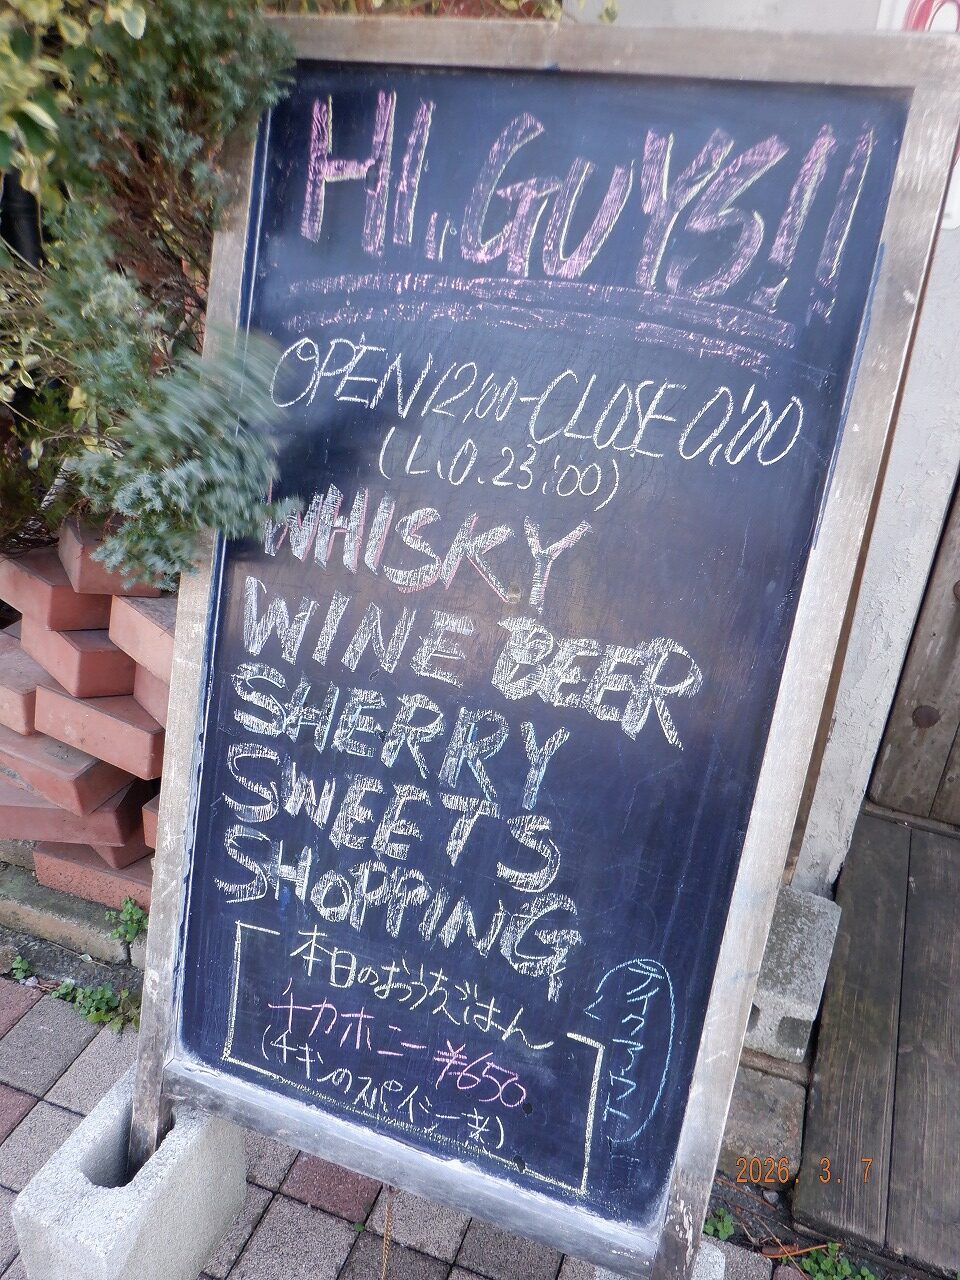 HI,GUYS!!
OPEN12:00-CLOSE 0:00
(L.O.23:00)
WHISKY
WINE BEER
SHERRY
SWEETS
SHOPPING
本日のおうちごはん
チカホニー ¥650
(チキンのスパイシー煮)
テイクアウト
2026. 3. 7